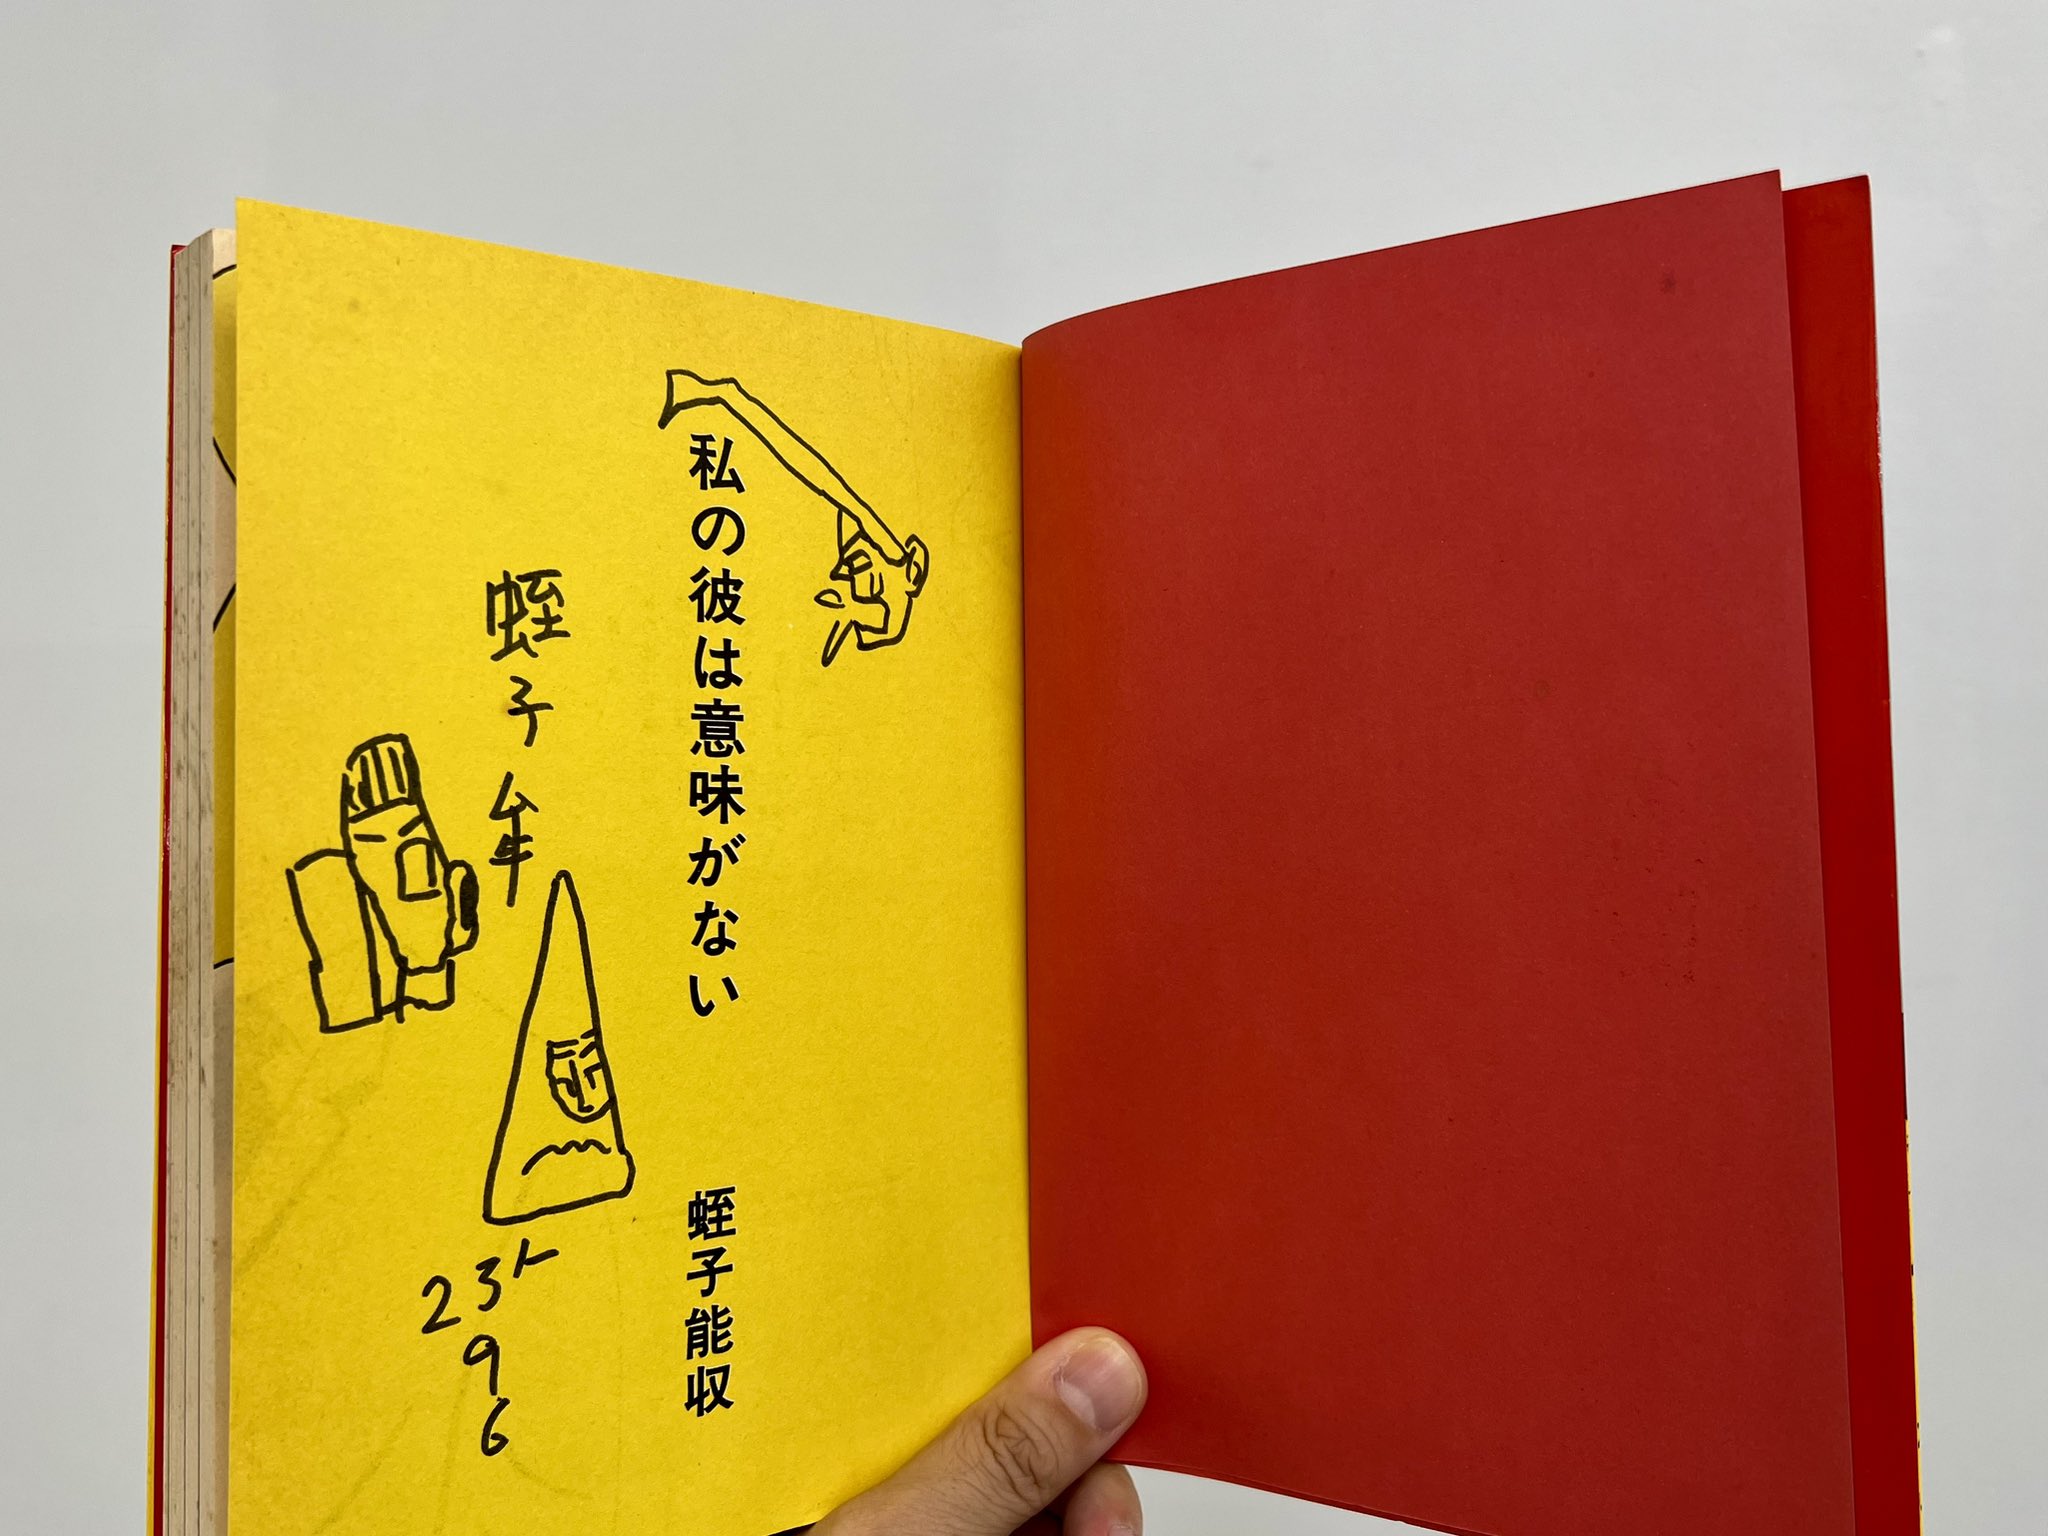 私の彼は意味がない
蛭子能収
蛭子
23
9
6